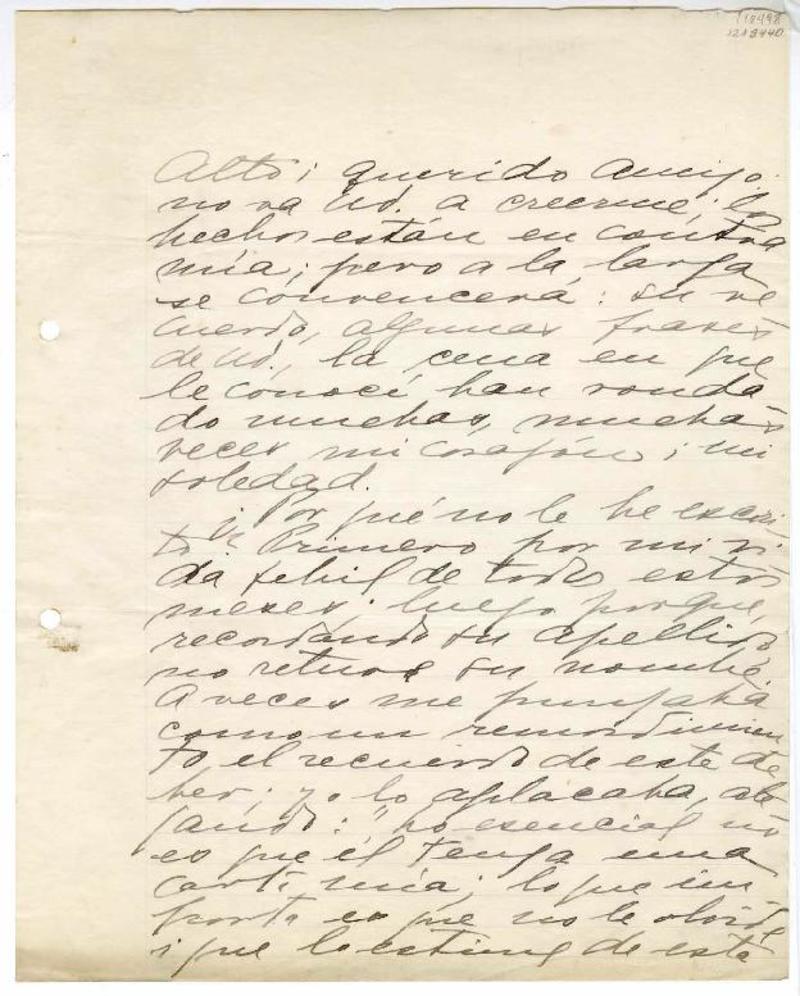 118498
1213440
Alto i querido amigo:
no va Ud. a creerme; los
hechos están en contra
mía; pero a la larga
se convencerá: su re
cuerdo, algunas frases
de Ud., la cena en que
le conocí han ronda
do muchas, muchas
veces mi corazón i mi
soledad.
¿Por qué no le he escri
to? Primero por mi vi
da febril de todos estos
meses; luego porque,
recordando su apellido,
no retuve su nombre.
A veces me punzaba
como un remordimien
to el recuerdo de este de
ber; yo lo aplacaba, ale
gando: "lo esencial no
es que él tenga una
carta mía; lo que im
porta es que no le olvide
i que lo estime de esta